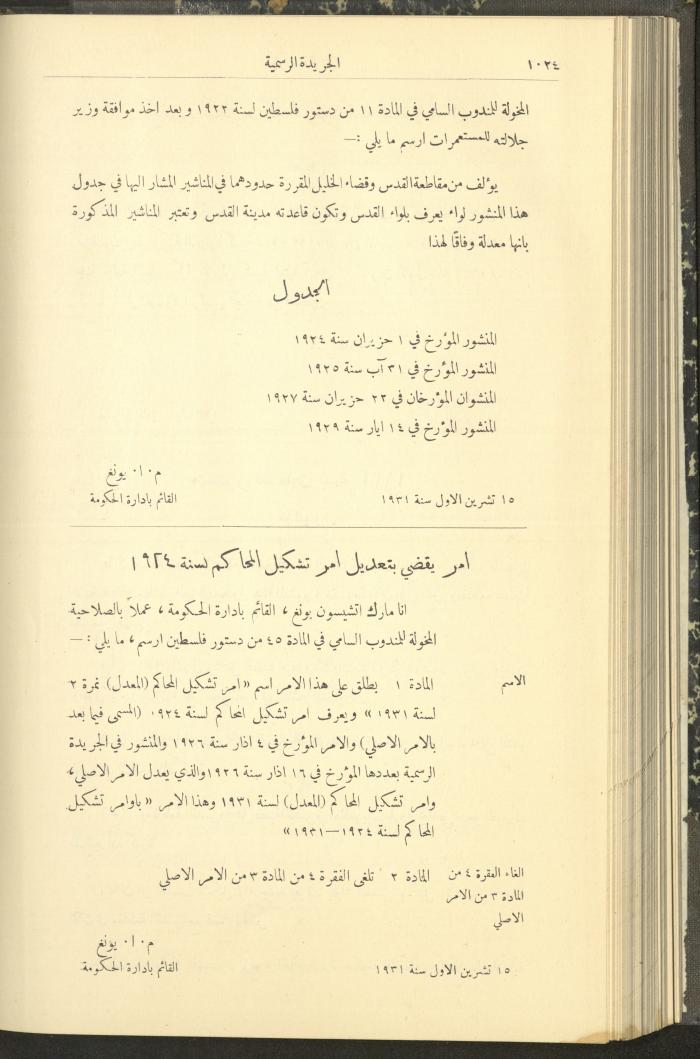 ١٠٢٤ الجريدة الرسمية
المخولة للمندوب السامي في المادة ١١ من دستور فلسطين لسنة ١٩٢٢ و بعد اخذ موافقة وزير
جلالته للمستعمرات ارسم ما يلي :—
يؤلف من مقاطعة القدس وقضاء الخليل المقررة حدودهما في المناشير المشار اليها في جدول
هذا المنشور لواء يعرف بلواء القدس وتكون قاعدته مدينة القدس وتعتبر المناشير المذكورة
بانها معدلة وفاقًا لهذا
الجدول
المنشور المؤرخ في ١ حزيران سنة ١٩٢٤
المنشور المؤرخ في ٣١ آب سنة ١٩٢٥
المنشوان المؤرخان في ٢٣ حزيران سنة ١٩٢٧
المنشور المؤرخ في ١٤ ايار سنة ١٩٢٩
م٠ا٠ يونغ
١٥ تشرين الاول سنة ١٩٣١ القائم بادارة الحكومة
امر يقضي بتعديل امر تشكيل المحاكم لسنة ١٩٢٤
انا مارك اتشيسون يونغ، القائم بادارة الحكومة، عملاً بالصلاحية
المخولة للمندوب السامي في المادة ٤٥ من دستور فلسطين ارسم، ما يلي :—
الاسم المادة ١ يطلق على هذا الامر اسم «امر تشكيل المحاكم (المعدل) نمرة ٢
لسنة ١٩٣١» ويعرف امر تشكيل المحاكم لسنة ١٩٢٤ (المسمى فيما بعد
بالامر الاصلي) والامر المؤرخ في ٤ اذار سنة ١٩٢٦ والمنشور في الجريدة
الرسمية بعددها المؤرخ في ١٦ اذار سنة ١٩٢٦ والذي يعدل الامر الاصلي،
وامر تشكيل المحاكم (المعدل) لسنة ١٩٣١ وهذا الامر «باوامر تشكيل
المحاكم لسنة ١٩٢٤—١٩٣١»
الغاء الفقرة ٤ من المادة ٢ تلغى الفقرة ٤ من المادة ٣ من الامر الاصلي
المادة ٣ من الامر
الاصلي
م٠ا٠ يونغ
١٥ تشرين الاول سنة ١٩٣١ القائم بادارة الحكومة